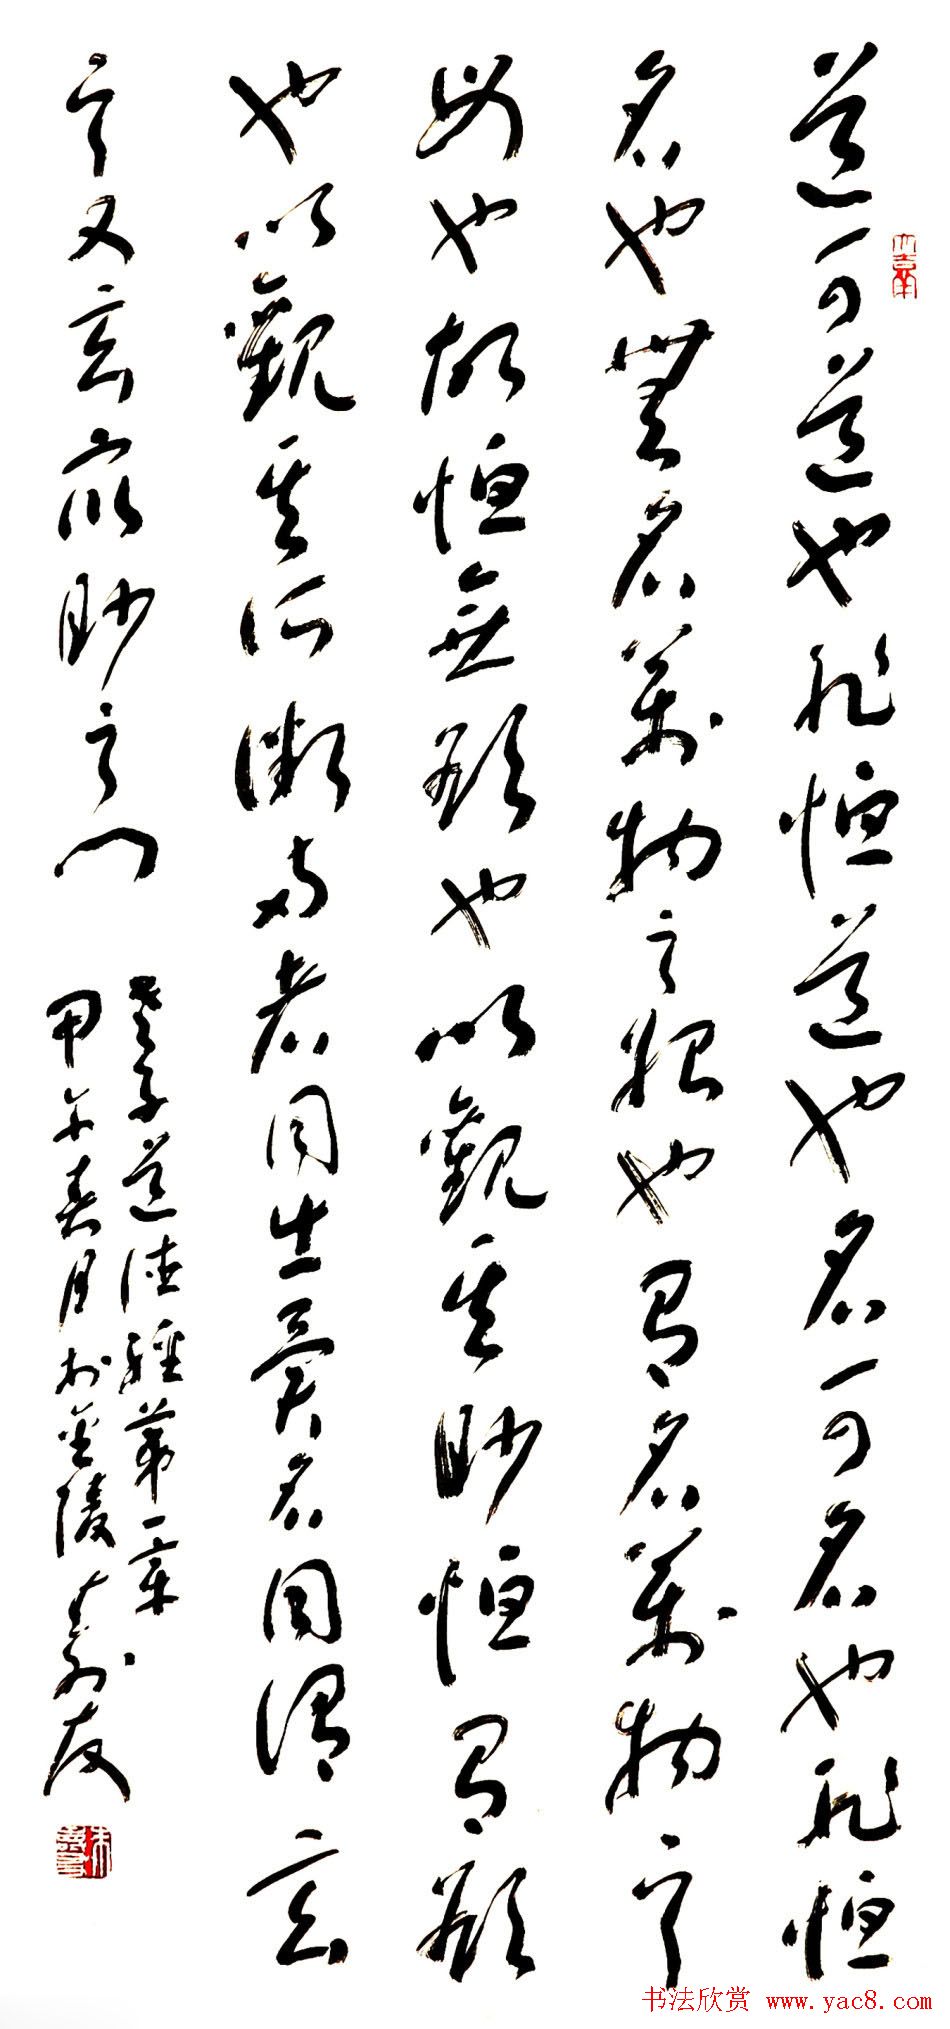 道可道也非恒道也名可名也非恒
名也無名萬物之始也有名萬物之
母也故恒無欲也以觀其眇恒有欲
也以觀其所徼兩者同出異名同謂玄
之又玄眾眇之門
老子道德經第一章
甲午春月於金陵壽友
书法欣赏 www.yac8.com